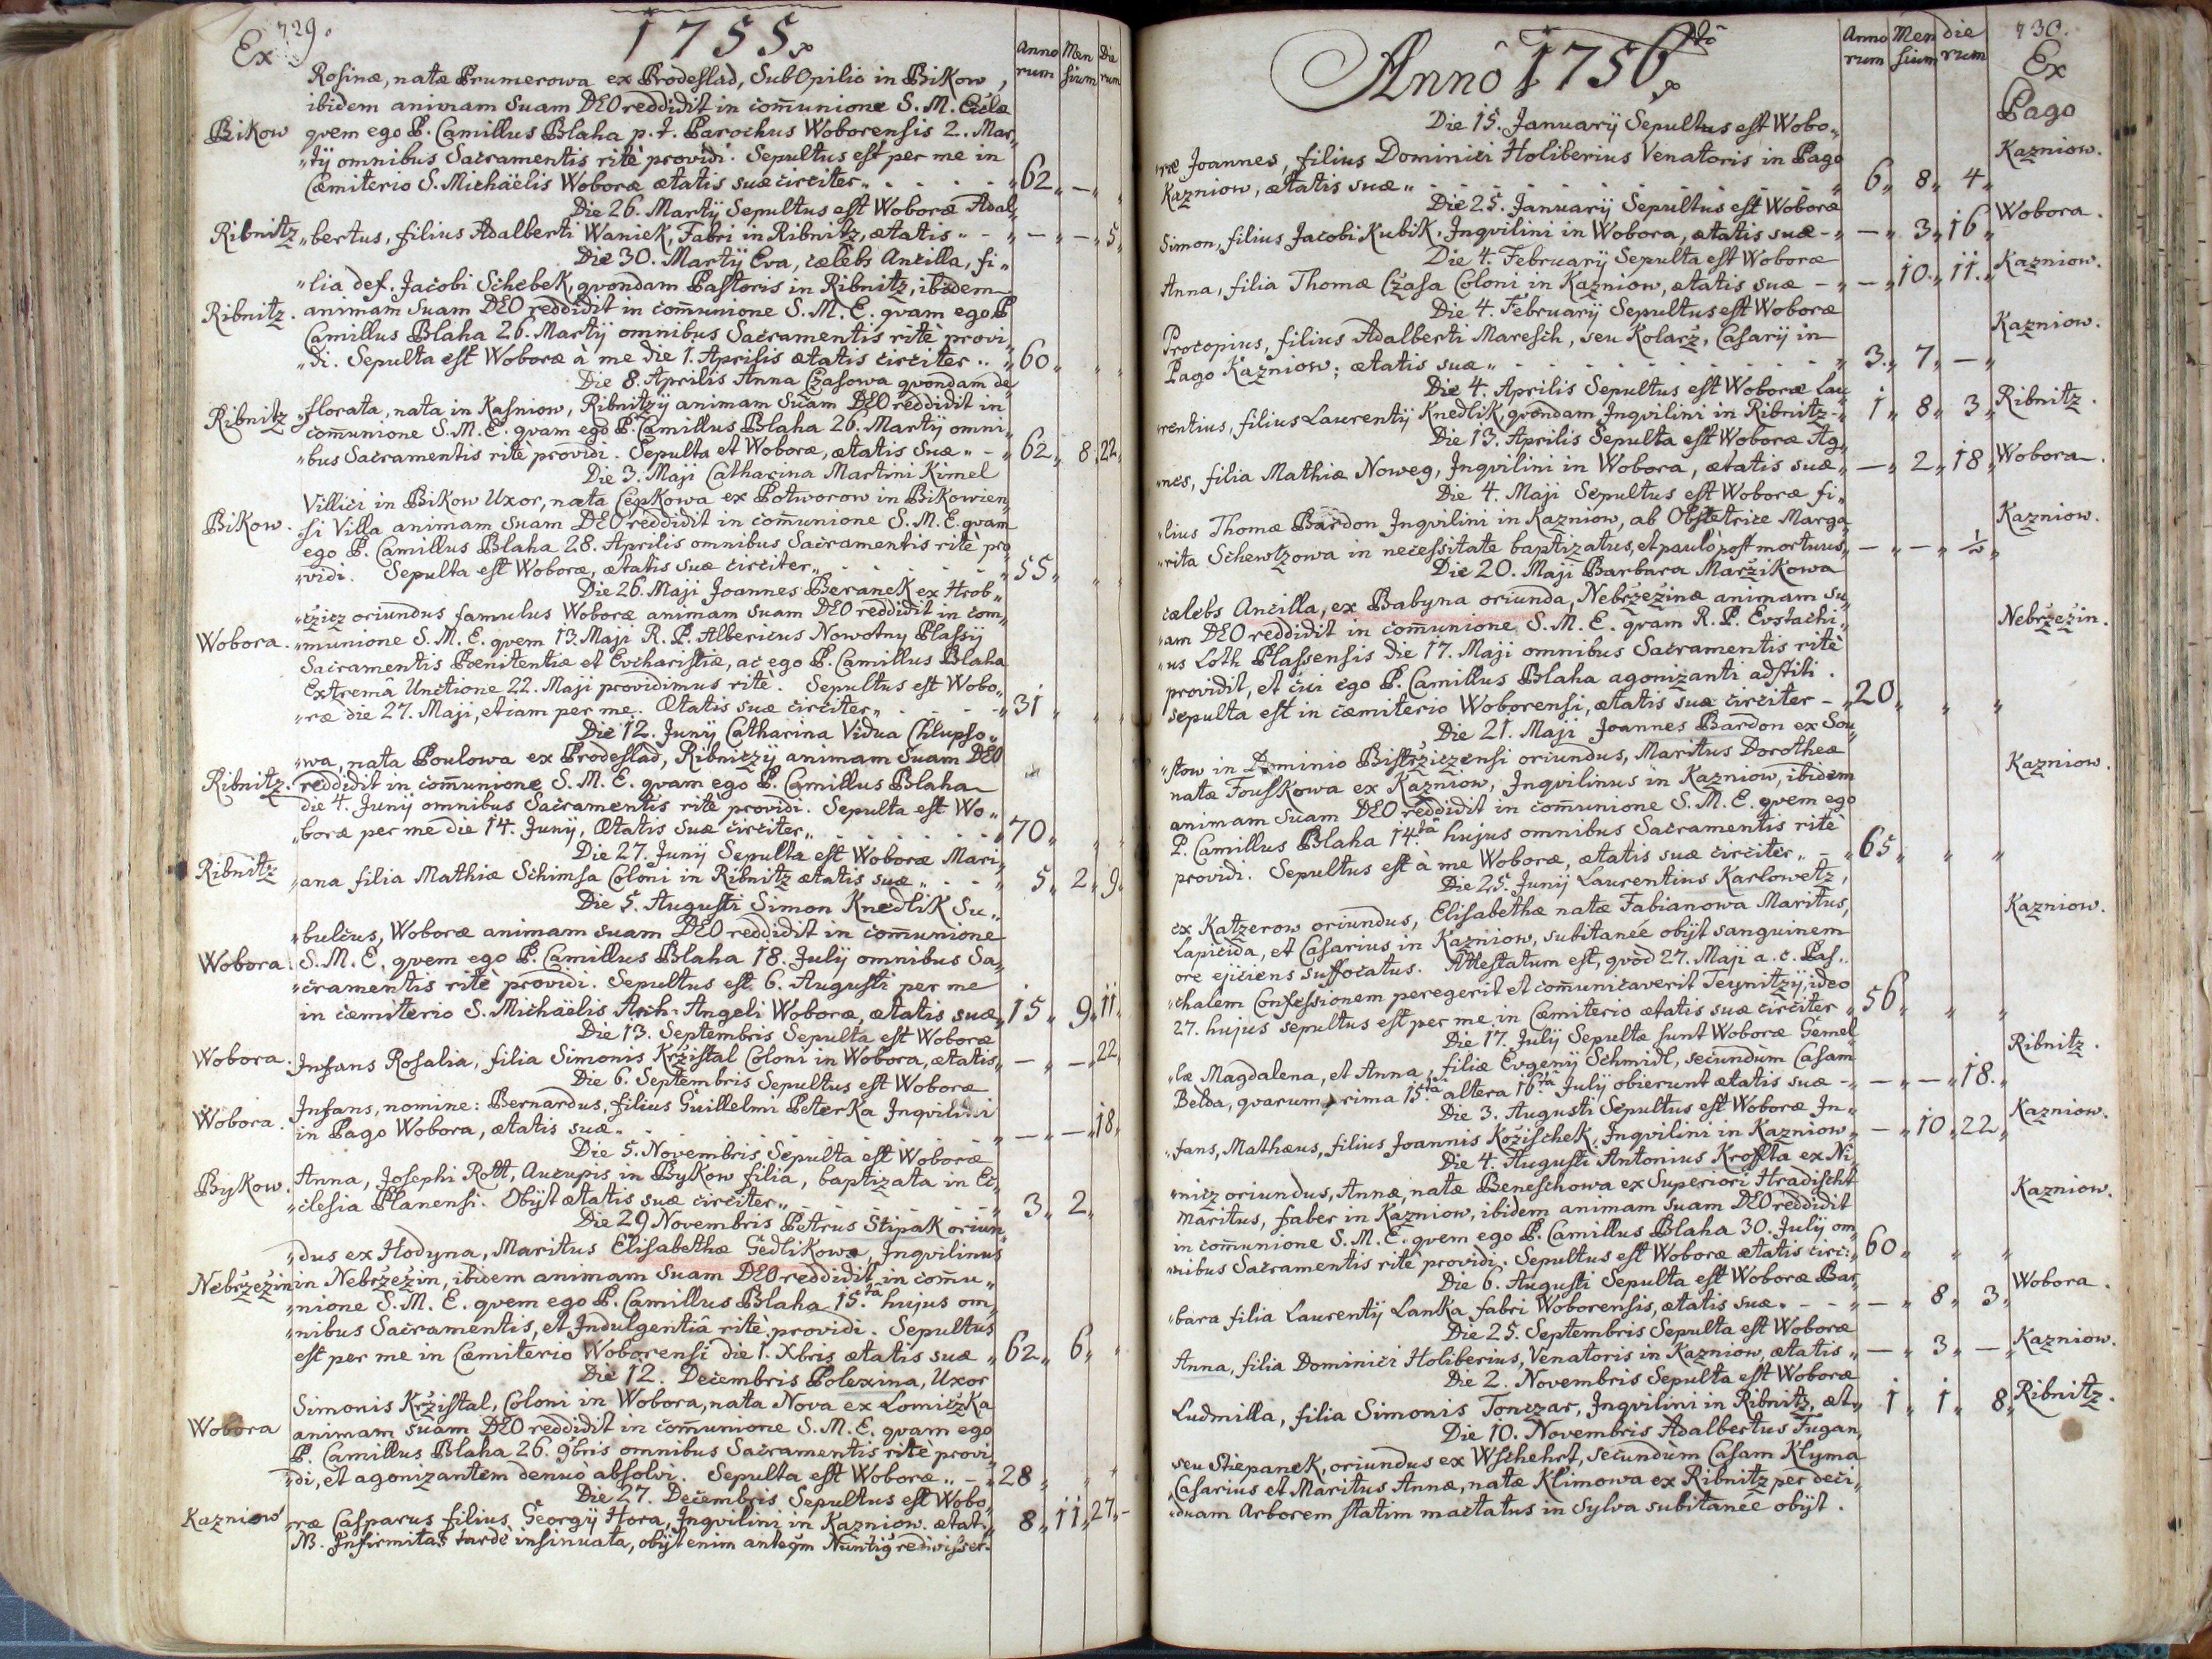 729.
Ex
1755.
Anno rum Men sium Die rum
Rosinæ, natæ Prumerowa ex Prodeslad, SubOpilio in Bikow,
ibidem animam suam DEO reddidit in com̄unione S. M. Ecclæ
Bikow quem ego P. Camillus Blaha p. t. Parochus Woborensis 2. Mar„
„tÿ omnibus Sacramentis ritè providi. Sepultus est per me in
Cæmiterio S. Michäelis Woboræ ætatis suæ circiter„ 62„ —„
Die 26. Martÿ Sepultus est Woboræ Adal„
Ribnitz „bertus, filius Adalberti Waniek, Fabri in Ribnitz, ætatis„ - „ —„ —„ 5„
Die 30. Martÿ Eva, cælebs Ancilla, fi„
„lia def. Jacobi Schebek, qvondam Pastoris in Ribnitz, ibidem
Ribnitz. animam suam DEO reddidit in com̄unione S. M. E. qvam ego P.
Camillus Blaha 26. Martÿ omnibus Sacramentis ritè provi„
„di. Sepulta est Woboræ à me die 1. Aprilis ætatis circiter„ „60„
Die 8. Aprilis Anna Czasowa qvondam de„
Ribnitz „florata, nata in Kasniow, Ribnitzÿ animam suam DEO reddidit in
com̄unione S. M. E. qvam ego P. Camillus Blaha 26. Martÿ omni„
„bus Sacramentis ritè providi. Sepulta et Woboræ, ætatis suæ„ - „62„ 8„ 22„
Die 3. Maji Catharina Martini Kimel
Villici in Bikow Uxor, nata Cepkowa ex Potworow in Bikowien„
Bikow. „si Villa animam suam DEO reddidit in com̄unione S. M. E. qvam
ego P. Camillus Blaha 28. Aprilis omnibus Sacramentis ritè pro„
„vidi. Sepulta est Woboræ, ætatis suæ circiter„ „55„
Die 26. Maji Joannes Beranek ex Hrob„
„czicz oriundus famulus Woboræ animam suam DEO reddidit in com„
Wobora. „munione S. M. E. qvem 13. Maji R. P. Albericus Nowotny Plassÿ
Sacramentis Pœnitentiæ et Evcharistiæ, ac ego P. Camillus Blaha
Extremâ Unctione 22. Maji providimus ritè. Sepultus est Wobo„
„ræ die 27. Maji, etiam per me. Ætatis suæ circiter„ „31„
Die 12. Junÿ Catharina Vidua Chlupso„
„wa, nata Poulowa ex Prodeslad, Ribnitzÿ animam suam DEO
Ribnitz. reddidit in com̄unione S. M. E. qvam ego P. Camillus Blaha
die 4. Junÿ omnibus Sacramentis ritè providi. Sepulta est Wo„
„boræ per me die 14. Junÿ, Ætatis suæ circiter„ „70„
Die 27. Junÿ Sepulta est Woboræ Mari„
Ribnitz „ana filia Mathiæ Schimsa Coloni in Ribnitz ætatis suæ„ „ 5„ 2„ 9„
Die 5. Augusti Simon Knedlik Su„
„bulcus, Woboræ animam suam DEO reddidit in com̄unione
Wobora. S. M. E. qvem ego P. Camillus Blaha 18. Julÿ omnibus Sa„
„cramentis ritè providi. Sepultus est 6. Augusti per me
in cæmiterio S. Michäelis Arch-Angeli Woboræ, ætatis suæ„ 15„ 9„ 11„
Die 13. Septembris Sepulta est Woboræ
Wobora. Infans Rosalia, filia Simonis Kržistal Coloni in Wobora, ætatis„ —„ —„ 22„
Die 6. Septembris Sepultus est Woboræ
Infans, nomine: Bernardus, filius Guillelmi Peterka Inqvilini
Wobora. in Pago Wobora, ætatis suæ„ „ —„ —„ 18„
Die 5. Novembris Sepulta est Woboræ
Bykow. Anna, Josephi Rott, Aucupis in Bykow filia, baptizata in Ec„
„clesia Planensi. Obÿt ætatis suæ circiter„ „ 3„ 2„
Die 29 Novembris Petrus Stipak oriun„
„dus ex Hodyna, Maritus Elisabethæ Gedlikowa, Inqvilinus
Nebržežin in Nebržežin, ibidem animam suam DEO reddidit in com̄u„
„nione S. M. E. qvem ego P. Camillus Blaha 15.ta hujus om„
„nibus Sacramentis, et Indulgentiâ ritè providi. Sepultus
est per me in Cæmiterio Woborensi die 1. Xbris ætatis suæ „ 62„ 6„
Die 12. Decembris Polexina, Uxor
Simonis Kržistal, Coloni in Wobora, nata Nova ex Lomiczka
Wobora animam suam DEO reddidit in com̄unione S. M. E. qvam ego
P. Camillus Blaha 26. 9bris omnibus Sacramentis ritè provi„
„di, et agonizantem denuò absolvi. Sepulta est Woboræ„ - „28„
Die 27. Decembris Sepultus est Wobo„
Kazniow „ræ Casparus filius Georgÿ Hora, Inqvilini in Kazniow. ætati„ 8„ 11„ 27„
NB. Infirmitas tardè insinuata, obÿt enim anteqm Nuntig redivisset.
Anno 1756.
Anno rum Men sium die rum
730.
Ex
Pago
Die 15. Januarÿ Sepultus est Wobo„
„ræ Joannes, filius Dominici Holiberius Venatoris in Pago Kazniow.
Kazniow, ætatis suæ„ „ 6„ 8„ 4„
Die 25. Januarÿ Sepultus est Woboræ
Simon, filius Jacobi Kubik, Inqvilini in Wobora, ætatis suæ - „ —„ 3„ 16„ Wobora.
Die 4. Februarÿ Sepulta est Woboræ
Anna, filia Thomæ Czasa Coloni in Kazniow, ætatis suæ - „ —„ 10„ 11„ Kazniow.
Die 4. Februarÿ Sepultus est Woboræ
Procopius, filius Adalberti Maresch, seu Kolarž, Casarÿ in Kazniow.
Pago Kazniow; ætatis suæ„ „ 3„ 7„ —„
Die 4. Aprilis Sepultus est Woboræ Lau„
„rentius, filius Laurentÿ Knedlik, qvondam Inqvilini in Ribnitz„ 1„ 8„ 3„ Ribnitz.
Die 13. Aprilis Sepulta est Woboræ Ag„
„nes, filia Mathiæ Noweg, Inqvilini in Wobora, ætatis suæ„ —„ 2„ 18„ Wobora.
Die 4. Maji Sepultus est Woboræ fi„
„lius Thomæ Bardon Inqvilini in Kazniow, ab Obstetrice Marga„ Kazniow.
„rita Schewtzowa in necessitate baptizatus, et paulò post mortuus„ —„ —„ ½„
Die 20. Maji Barbara Maržikowa
cælebs Ancilla, ex Babyna oriunda, Nebržežinæ animam su„
„am DEO reddidit in com̄unione S. M. E. qvam R. P. Evstachi„ Nebržežin.
„us Loth Plassensis die 17. Maji omnibus Sacramentis ritè
providit, et cui ego P. Camillus Blaha agonizanti adstiti.
Sepulta est in cæmiterio Woborensi, ætatis suæ circiter - „20„
Die 21. Maji Joannes Bardon ex Sou„
„stow in Dominio Bistržiczensi oriundus, Maritus Dorotheæ
natæ Fouskowa ex Kazniow, Inqvilinus in Kazniow, ibidem Kazniow.
animam suam DEO reddidit in com̄unione S. M. E. qvem ego
P. Camillus Blaha 14.ta hujus omnibus Sacramentis ritè
providi. Sepultus est à me Woboræ, ætatis suæ circiter„ - „65„
Die 25. Junÿ Laurentius Karlowetz,
ex Katzerow oriundus, Elisabethæ natæ Fabianowa Maritus, Kazniow.
Lapicida, et Casarius in Kazniow, subitaneè obÿt sanguinem
ore ejiciens suffocatus. Attestatum est, qvòd 27. Maji a. c. Pas„
„chalem Confessionem peregerit et com̄unicaverit Teynitzÿ, ideo
27. hujus sepultus est per me in Cæmiterio ætatis suæ circiter „56„
Die 17. Julÿ Sepultæ sunt Woboræ Gemel„
„læ Magdalena, et Anna, filiæ Evgenÿ Schmidt, secundùm Casam Ribnitz.
Belda, qvarum prima 15.ta altera 16.ta Julÿ obierunt ætatis suæ - „ —„ —„ 18„
Die 3. Augusti Sepultus est Woboræ In„
„fans, Mathæus, filius Joannis Kožischek, Inqvilini in Kazniow„ —„ 10„ 22„ Kazniow.
Die 4. Augusti Antonius Krofta ex Ni„
„micz oriundus, Annæ, natæ Beneschowa ex Superiori Hradischt
Maritus, faber in Kazniow, ibidem animam suam DEO reddidit Kazniow.
in com̄unione S. M. E. qvem ego P. Camillus Blaha 30. Julÿ om„
„nibus Sacramentis ritè providi. Sepultus est Woboræ ætatis circ:„ 60„
Die 6. Augusti Sepulta est Woboræ Bar„
„bara filia Laurentÿ Lanka fabri Woborensis, ætatis suæ„ - - „ —„ 8„ 3„ Wobora.
Die 25. Septembris Sepulta est Woboræ
Anna, filia Dominici Holiberius, Venatoris in Kazniow, ætatis„ —„ 3„ —„ Kazniow.
Die 2. Novembris Sepulta est Woboræ
Ludmilla, filia Simonis Tonczar, Inqvilini in Ribnitz, æt„ 1„ 1„ 8„ Ribnitz.
Die 10. Novembris Adalbertus Fugan,
seu Stiepanek, oriundus ex Wschehrt, secundùm Casam Klyma
Casarius et Maritus Annæ, natæ Klimowa ex Ribnitz per deci„
„duam Arborem statim mactatus in Sylva subitaneè obÿt.